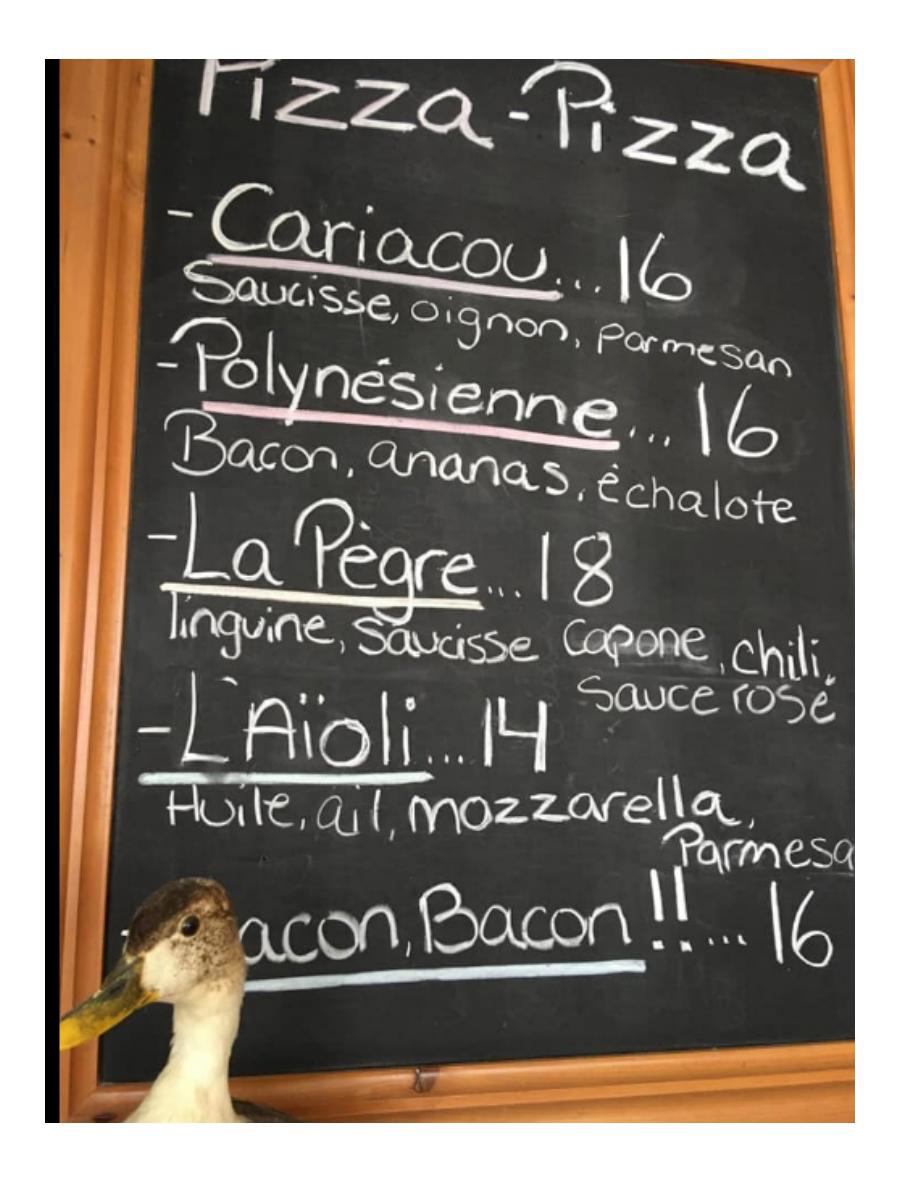 Pizza-Pizza
- Cariacou... 16
Saucisse, oignon, parmesan
- Polynésienne... 16
Bacon, ananas, échalote
- La Pègre... 18
linguine, saucisse capone, chili,
sauce rosé
- L'Aïoli... 14
Huile, ail, mozzarella,
Parmesa
- acon, Bacon!!... 16